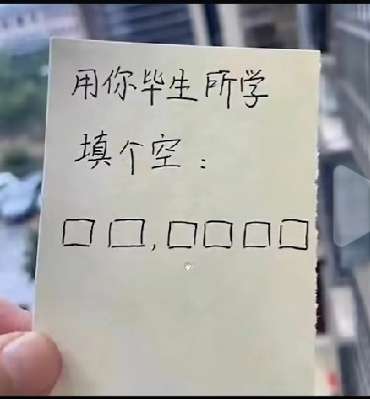 用你毕生所学
填个空：
□□,□□□□